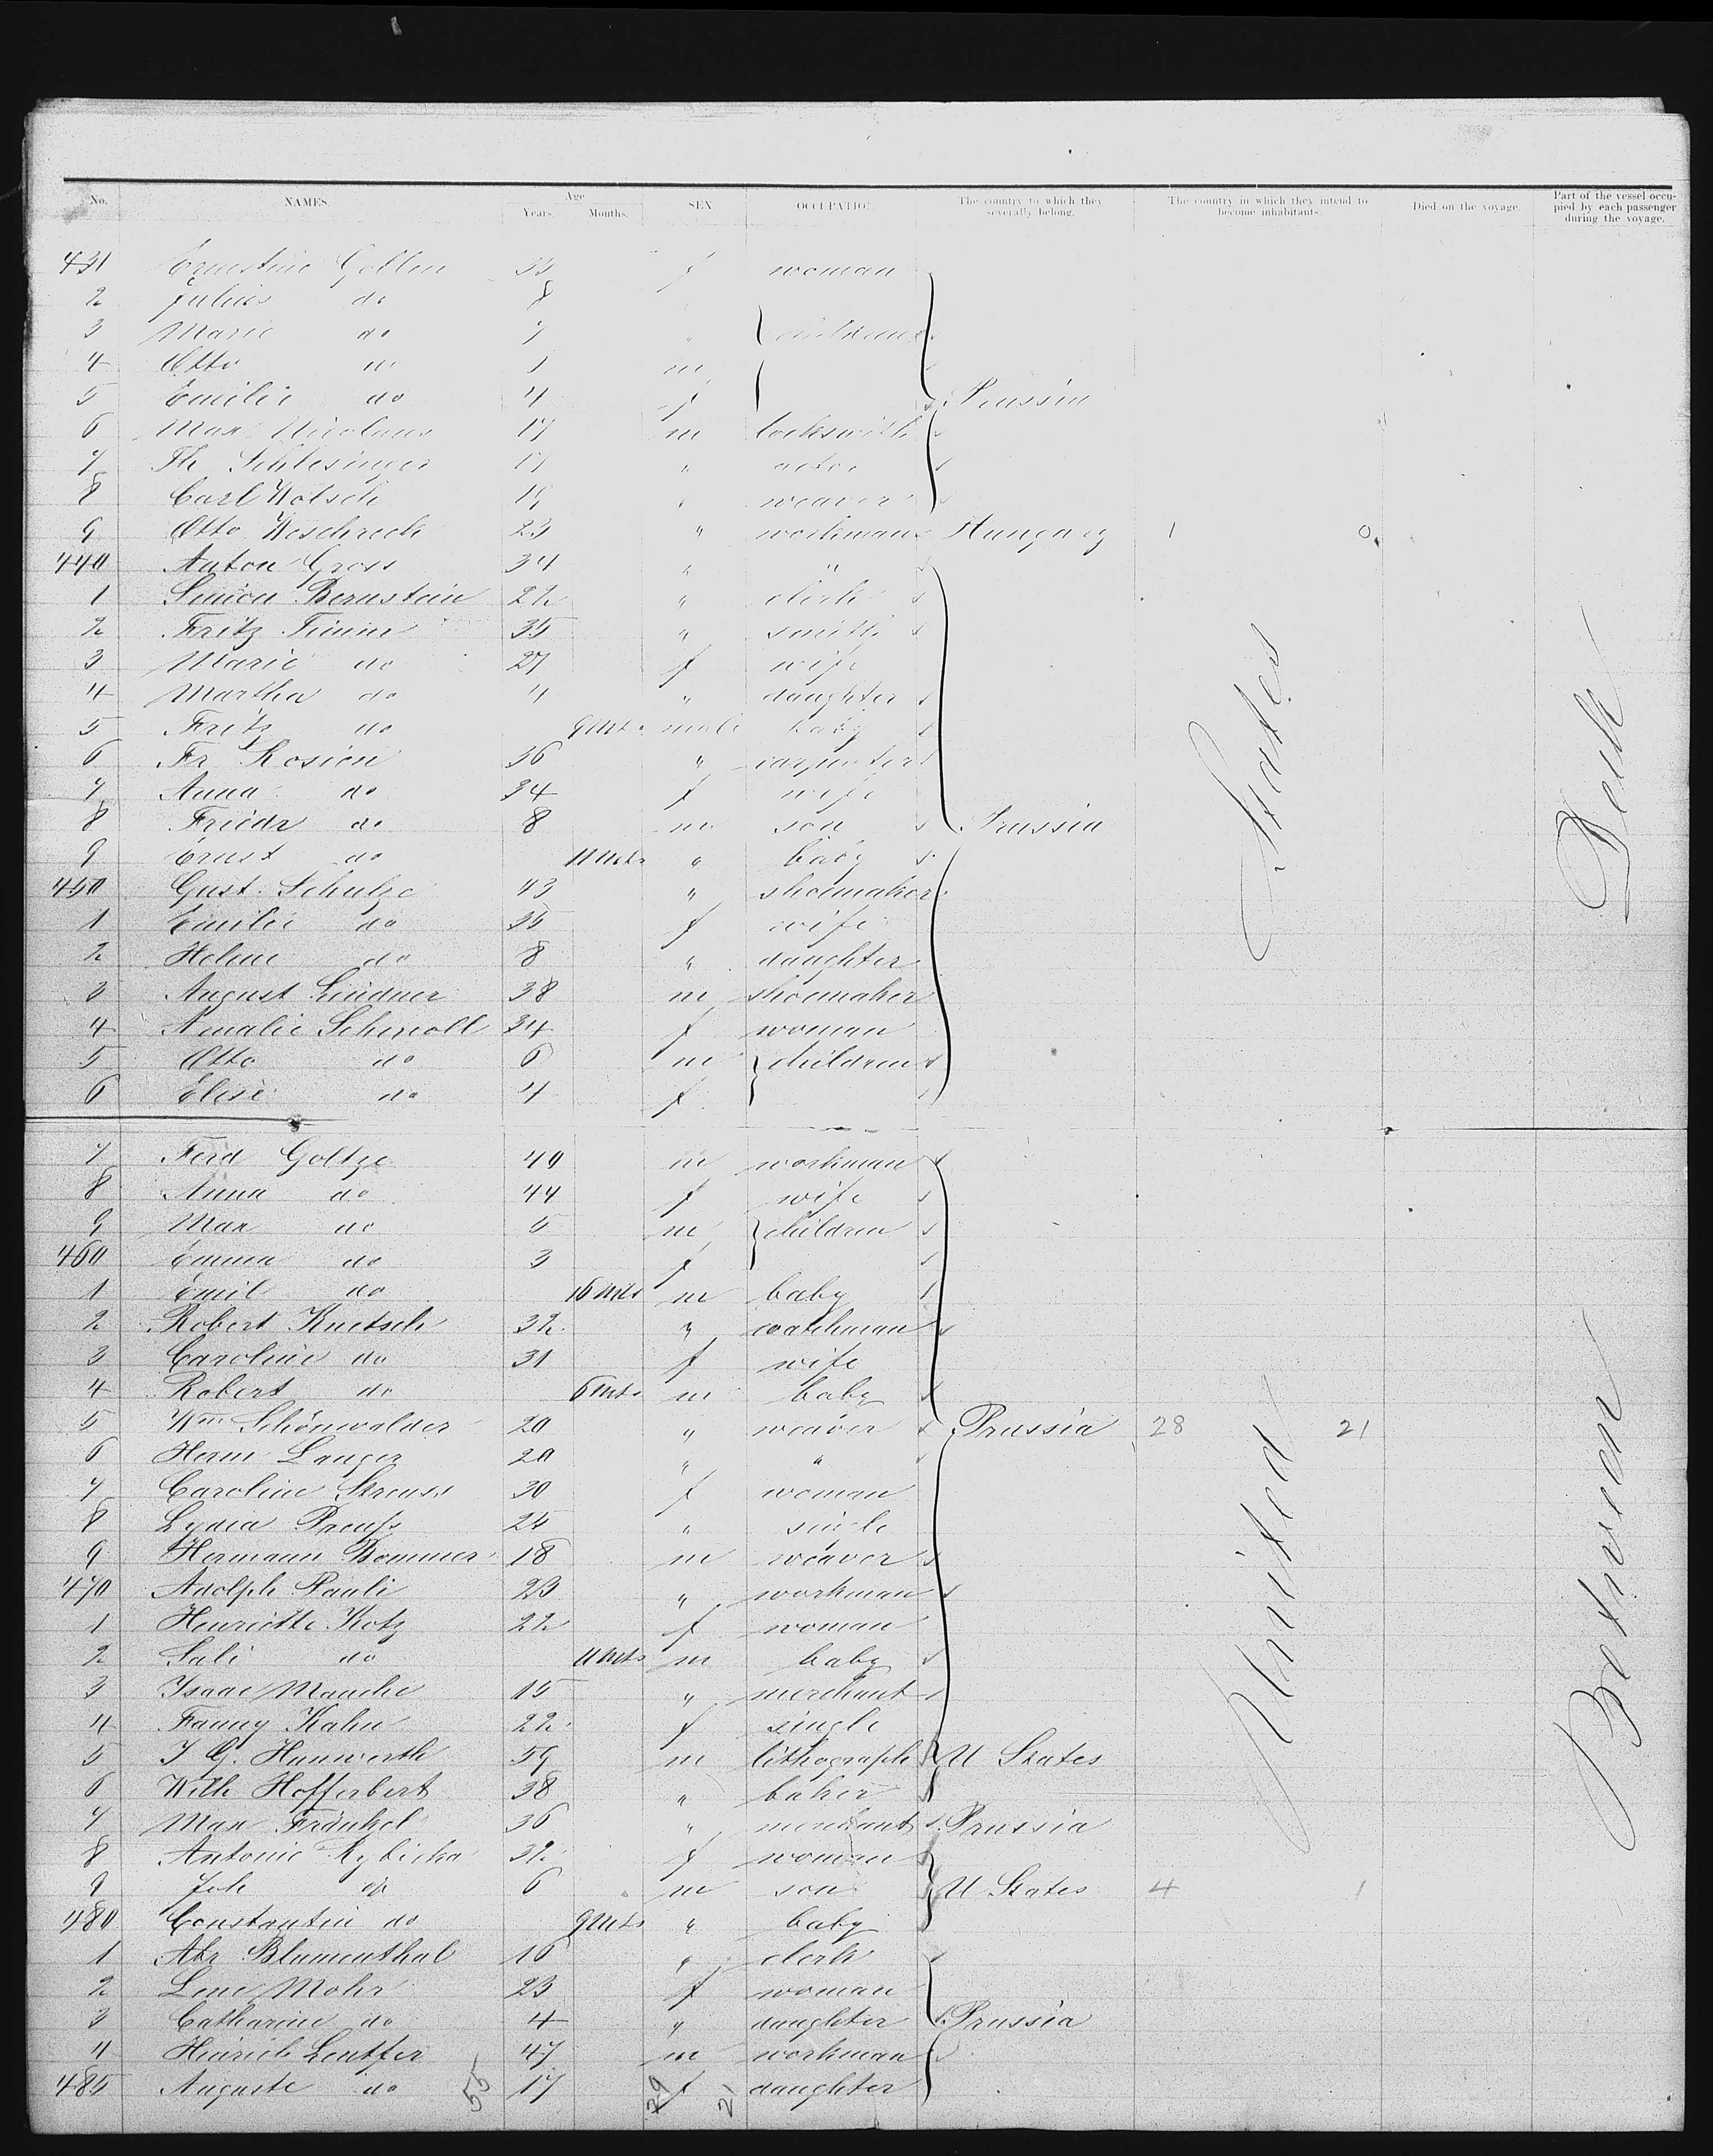 No. NAMES. Age Years. Months. SEX. OCCUPATIO The country to which they severally belong. The country in which they intend to become inhabitants Died on the voyage. Part of the vessel occupied by each passenger during the voyage.
431 Ernestine Gollen 33 f woman
2 Julius do 8
3 Marie do 7 " children
4 Otto do 1 m
5 Emilie do 4 f Prussia
6 Max Nicolaus 17 m locksmith
7 Th Schlesinger 17 " actor
8 Carl Wotsch 19 " weaver
9 Otto Weschreck 23 " workman Hungary 1 0
440 Anton Gross 34 " "
1 Simon Bernstein 22 " clerk
2 Fritz Timm 35 " smith
3 Marie do 27 f wife
4 Martha do 4 " daughter
5 Fritz do 9 Mts male baby
6 Fr. Rosien 36 " carpenter
7 Anna do 34 f wife
8 Friedr do 8 m son Prussia
9 Ernst do 11 Mts " baby
450 Gust. Schulze 43 " shoemaker
1 Emilie do 35 f wife
2 Helene do 8 " daughter
3 August Lindner 38 m shoemaker
4 Amalie Schmoll 34 f woman
5 Otto do 6 m children
6 Elise do 4 f
7 Ferd Goltze 40 m workman
8 Anna do 44 f wife
9 Max do 5 m children
460 Emma do 3 f
1 Emil do 10 Mts m baby
2 Robert Knetsch 32 " coatchman
3 Caroline do 31 f wife
4 Robert do 6 Mts m baby
5 Wm Schönwalder 20 " weaver Prussia 28 21
6 Herm Langer 20 " "
7 Caroline Strauss 30 f woman
8 Lydia Preuss 25 " single
9 Hermann Bommer 18 m weaver
470 Adolph Pauli 23 " workman
1 Henriette Kotz 22 f woman
2 Sali do 11 Mts m baby
3 Isaac Manche 15 " merchant
4 Fanny Kahn 22 f single
5 J G. Hanwerth 59 m lithograph U States
6 Wilh Hofferbert 38 " baker
7 Max Fränkel 36 " merchant Prussia
8 Antonie Rybicka 32 f woman
9 Joh do 6 m son U States 4 1
480 Constantin do 9 Mts " baby
1 Abr Blumenthal 16 " clerk
2 Lene Mohr 23 f woman
3 Catharine do 4 " daughter Prussia
4 Heinrich Leutfer 47 m workman
485 Auguste do 17 f daughter
55 29 21
United States
Between Deck